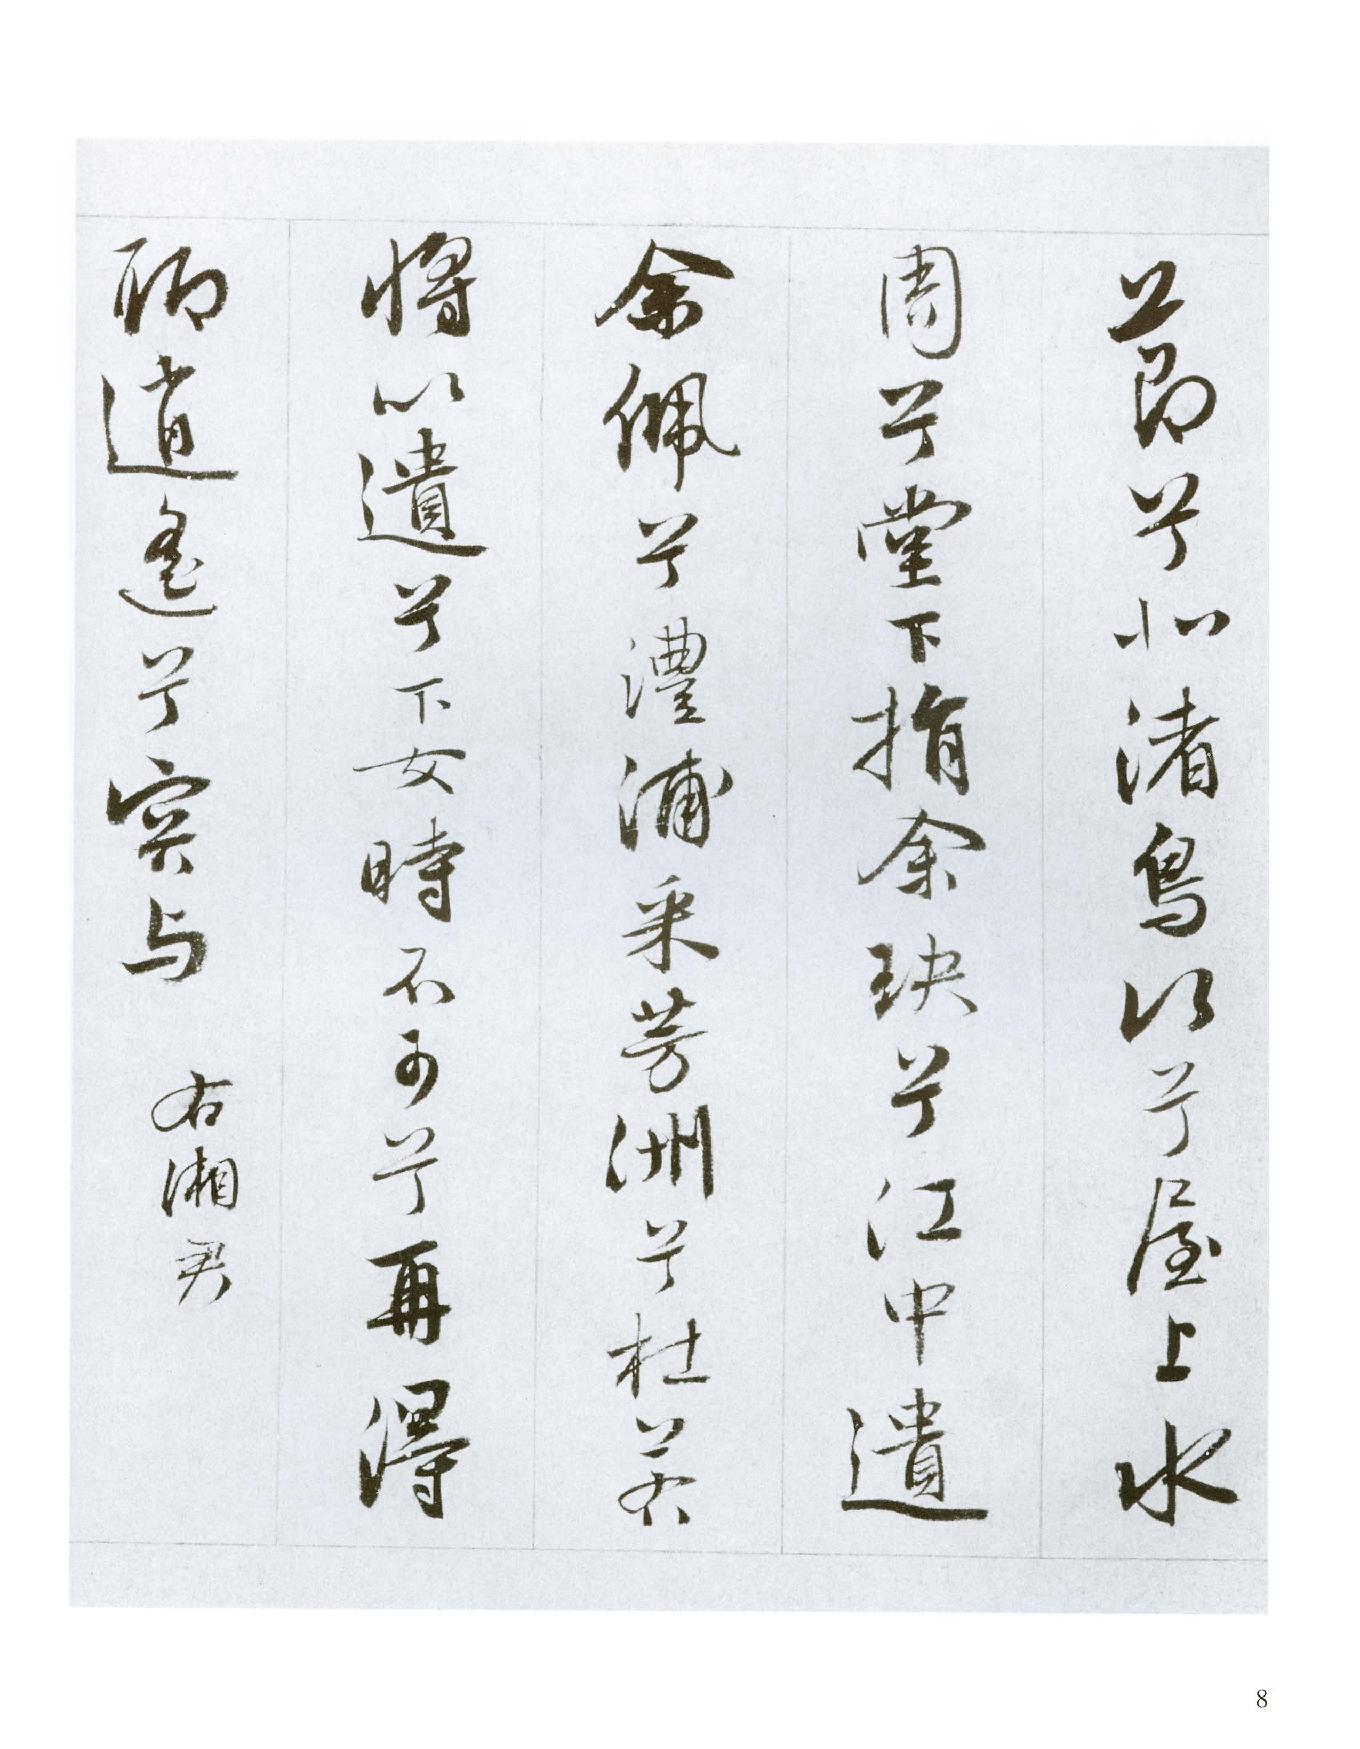 節兮北渚鳥次兮屋上水
周兮堂下捐余玦兮江中遺
余佩兮澧浦采芳洲兮杜若
將以遺兮下女時不可兮再得
聊逍遙兮容与 右湘君
8